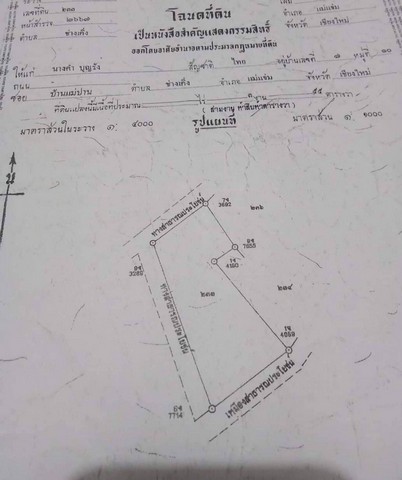 เลขที่ดิน ๒๓๓ โฉนดที่ดิน อำเภอ แม่แจ่ม
หน้าสำรวจ เป็นหนังสือสำคัญแสดงกรรมสิทธิ์ จังหวัด เชียงใหม่
ตำบล ช่างเคิ่ง ออกโดยอาศัยอำนาจตามประมวลกฎหมายที่ดิน
ให้แก่ นางคำ บุญรัง สัญชาติ ไทย อยู่บ้านเลขที่ ๘ หมู่ที่ ๑๐
ถนน
ซอย บ้านแม่ปาน ตำบล ช่างเคิ่ง อำเภอ แม่แจ่ม จังหวัด เชียงใหม่
ที่ดินแปลงนี้มีเนื้อที่ประมาณ ไร่ งาน ๕๕ ตารางวา
มาตราส่วนในระวาง ๑: ๔๐๐๐ รูปแผนที่ มาตราส่วน ๑: ๑๐๐๐
น
ทางสาธารณประโยชน์
3692
๒๓๖
7855
3285
4180
ทางสาธารณประโยชน์
๒๓๓
๒๓๔
4689
เหมืองสาธารณประโยชน์
7714